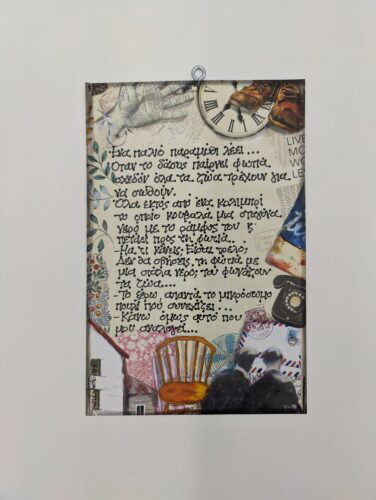 Ένα παλιό παραμύθι λέει...
Όταν το δάσος παίρνει φωτιά
σχεδόν όλα τα ζώα τρέχουν για
να σωθούν.
Όλα εκτός από ένα κολιμπρί
το οποίο κουβαλά μια σταγόνα
νερό με το ράμφος του κ'
πετάει προς τη φωτιά...
-Μα τι κάνεις; Είσαι τρελό;
Δεν θα σβήσεις τη φωτιά με
μια στάλα νερό, του φωνάζουν
τα ζώα....
-Το ξέρω, απαντά το μικρόσωμο
πουλί που συνεχίζει...
-Κάνω όμως αυτό που
μου αναλογεί...
LIVE